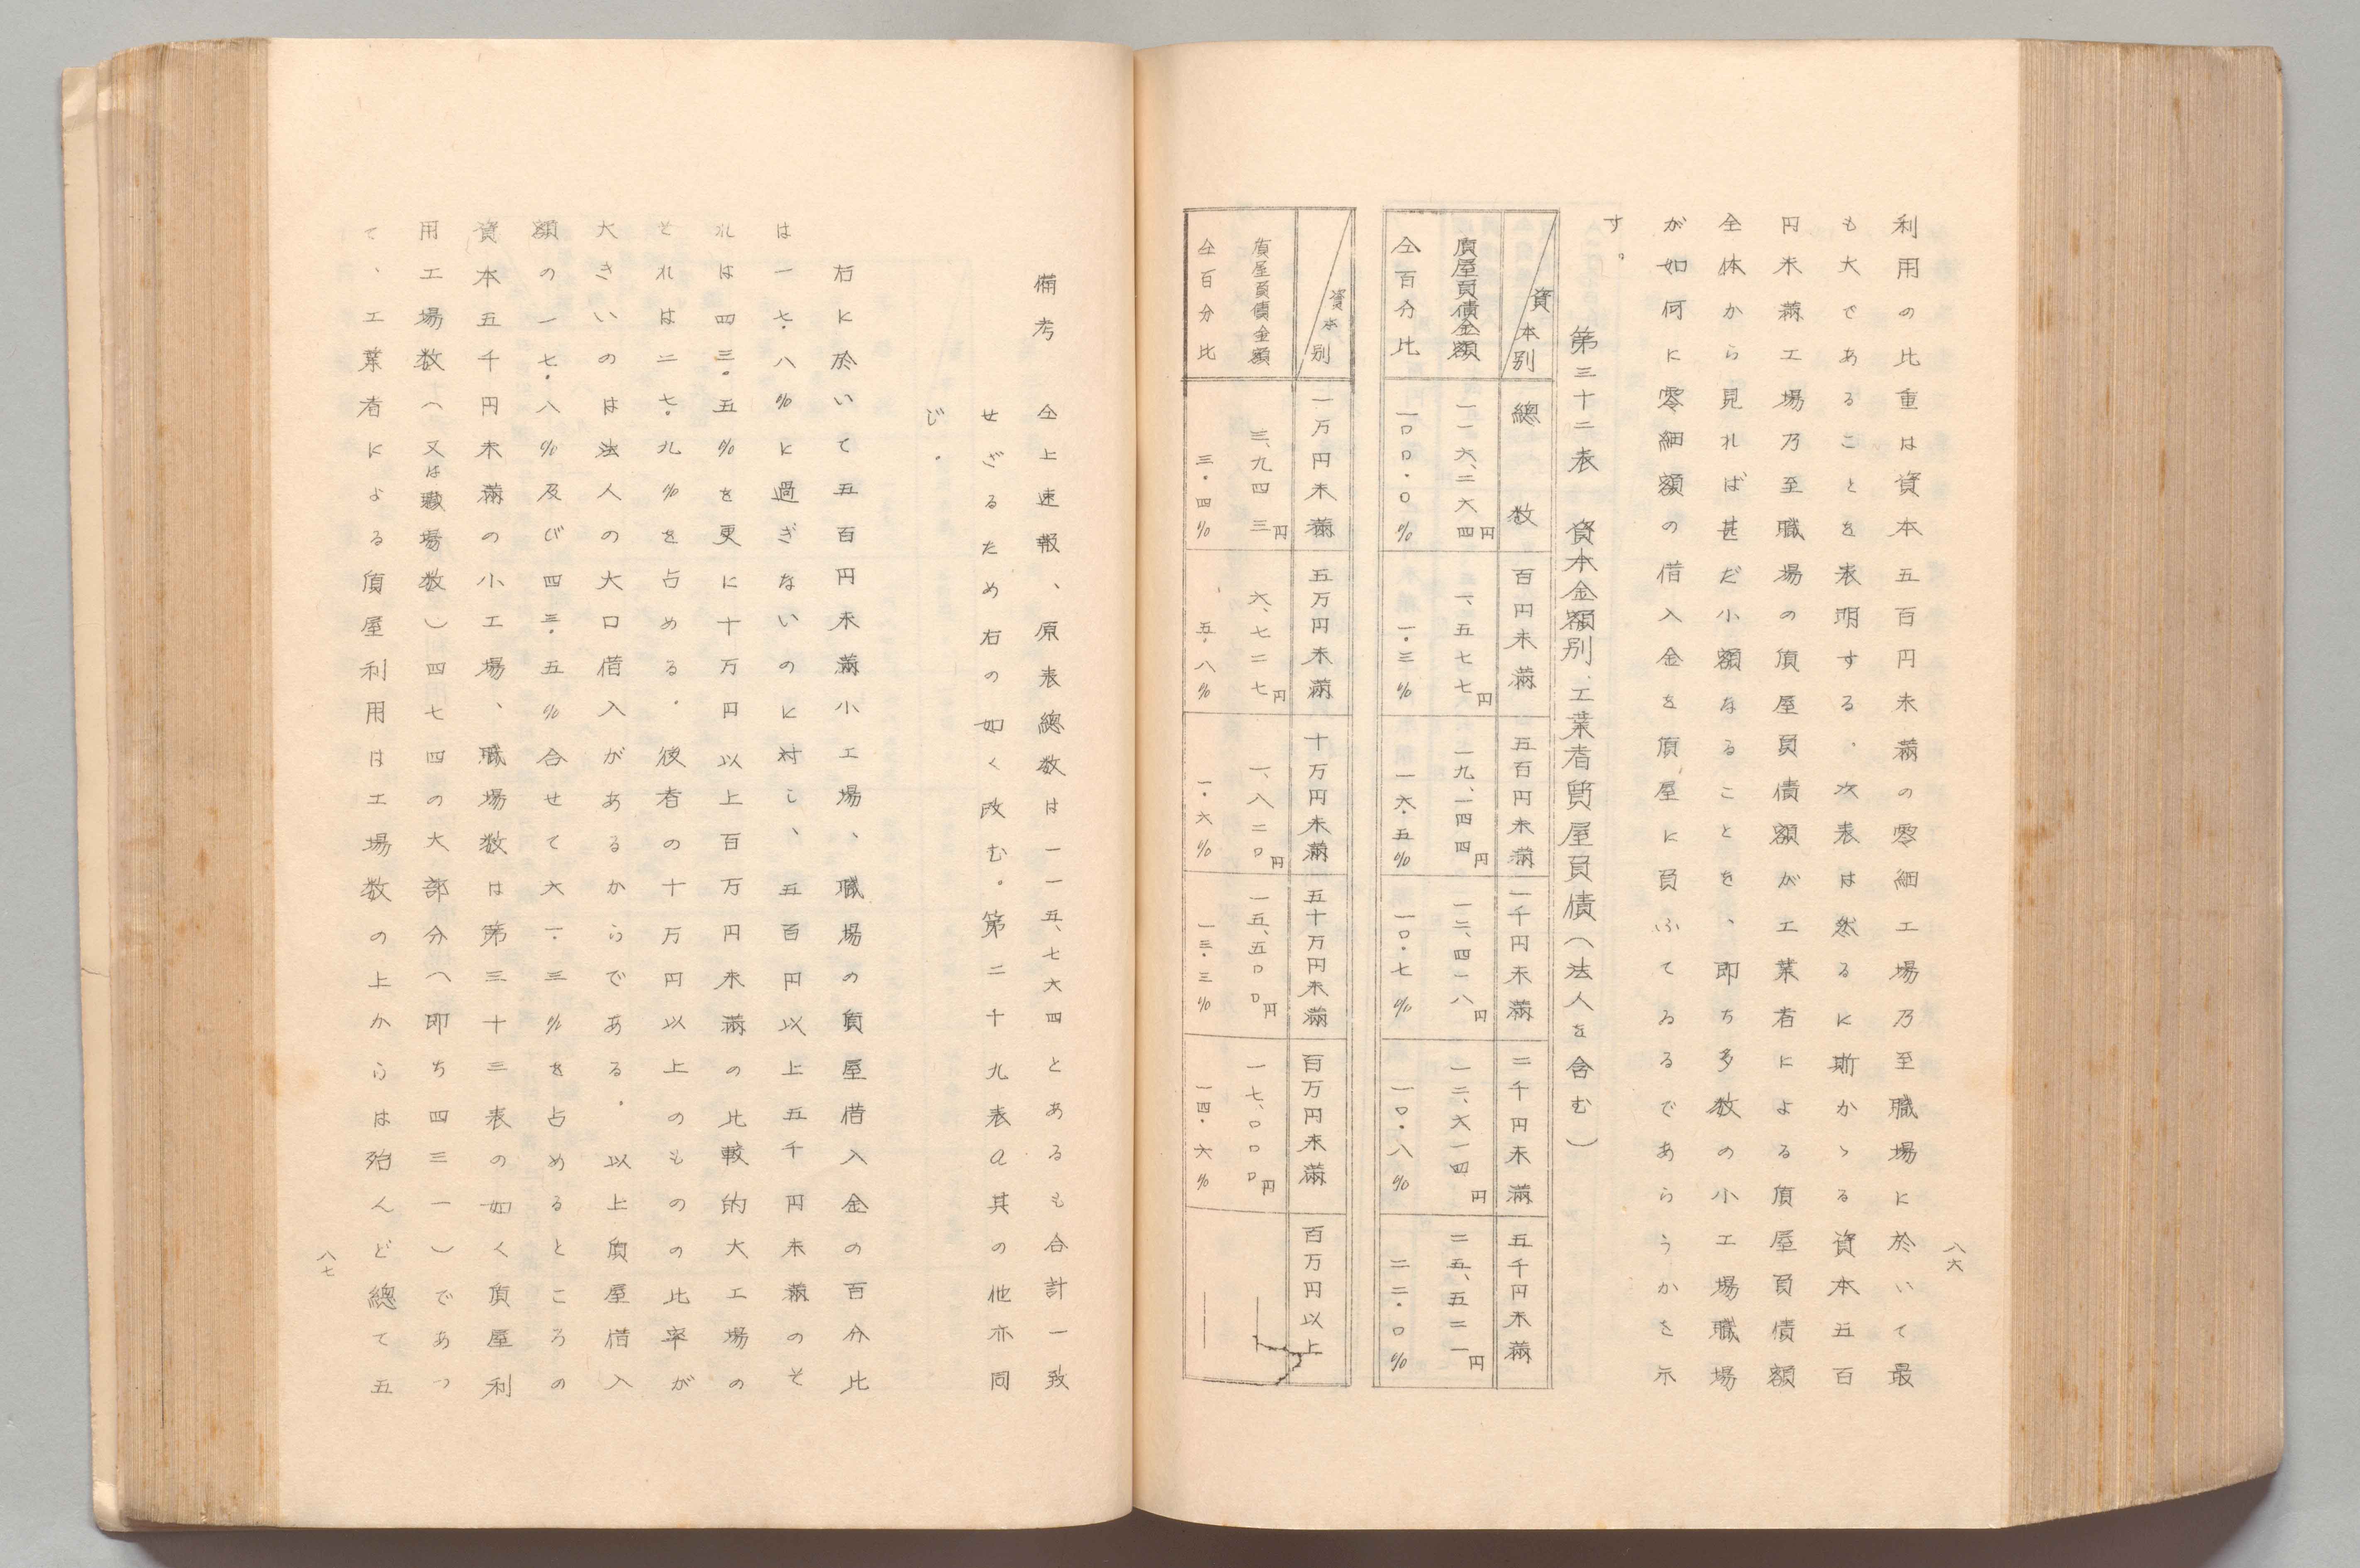 八六
利用の比重は資本五百円未満の零細工場乃至職場に於いて最
も大であることを表明する、次表は然るに斯かゝる資本五百
円未満工場乃至職場の質屋負債額が工業者による質屋負債額
全体から見れば甚だ小額なることを、即ち多数の小工場職場
が如何に零細額の借入金を質屋に負ふてゐるであらうかを示
す。
第三十二表 資本金額別、工業者質屋負債(法人を含む)
資本別 總数 百円未満 五百円未満 一千円未満 二千円未満 五千円未満
質屋負債金額 一一六、二六四円 一、五七七円 一九、一四四円 一二、四一八円 一二、六一四円 二五、五二一円
仝百分比 一〇〇・〇% 一・三% 一六・五% 一〇・七% 一〇・八% 二二・〇%
資本別 一万円未満 五万円未満 十万円未満 五十万円未満 百万円未満 百万円以上
質屋負債金額 三、九四三円 六、七二七円 一、八二〇円 一五、五〇〇円 一七、〇〇〇円 ―
仝百分比 三・四% 五・八% 一・六% 一三・三% 一四・六% ―
備考 仝上速報、原表總数は一一五、七六四とあるも合計一致
せざるため右の如く改む。第二十九表a其の他亦同
じ。
右に於いて五百円未満小工場、職場の質屋借入金の百分比
は一七・八%に過ぎないのに対し、五百円以上五千円未満のそ
れは四三・五%を更に十万円以上百万円未満の比較的大工場の
それは二七・九%を占める。後者の十万円以上のものの比率が
大きいのは法人の大口借入があるからである。以上質屋借入
額の一七・八%及び四三・五%合せて六一・三%を占めるところの
資本五千円未満の小工場、職場数は第三十三表の如く質屋利
用工場数(又は職場数)四七四の大部分(即ち四三一)であつ
て、工業者による質屋利用は工場数の上からは殆んど總て五
八七